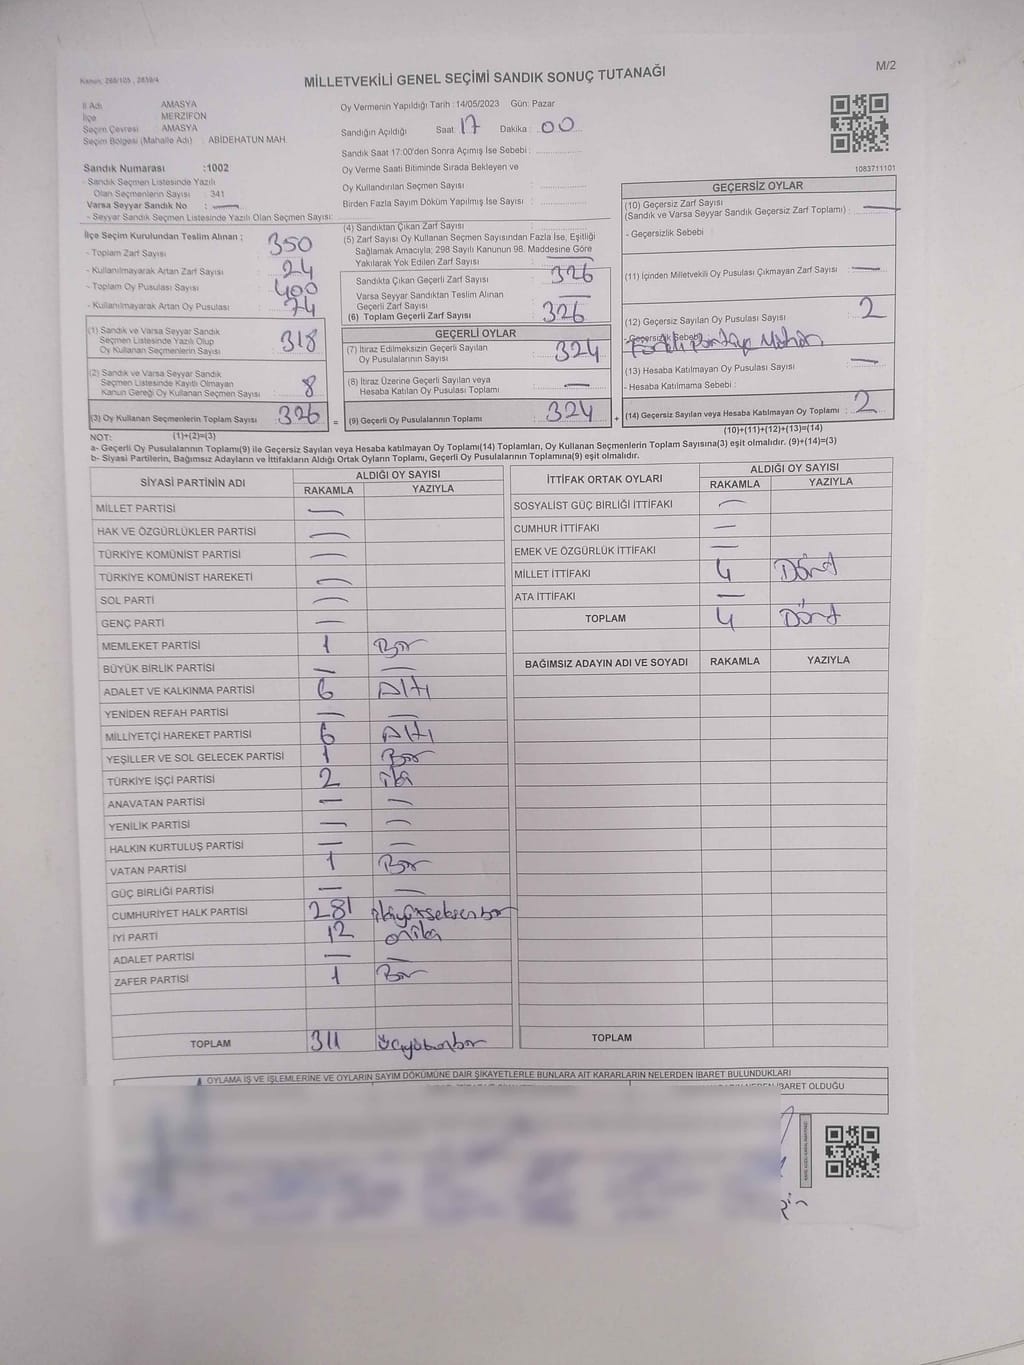 Kanun: 298/105 , 2839/4
MİLLETVEKİLİ GENEL SEÇİMİ SANDIK SONUÇ TUTANAĞI
M/2
İl Adı : AMASYA
İlçe : MERZİFON
Seçim Çevresi : AMASYA
Seçim Bölgesi (Mahalle Adı) : ABİDEHATUN MAH
Sandık Numarası :1002
- Sandık Seçmen Listesinde Yazılı
Olan Seçmenlerin Sayısı : 341
Varsa Seyyar Sandık No : —
- Seyyar Sandık Seçmen Listesinde Yazılı Olan Seçmen Sayısı:
Oy Vermenin Yapıldığı Tarih :14/05/2023 Gün: Pazar
Sandığın Açıldığı Saat 17 Dakika : 00
Sandık Saat 17:00'den Sonra Açımış İse Sebebi :
Oy Verme Saati Bitiminde Sırada Bekleyen ve
Oy Kullandırılan Seçmen Sayısı :
Birden Fazla Sayım Döküm Yapılmış İse Sayısı :
1083711101
İlçe Seçim Kurulundan Teslim Alınan ;
- Toplam Zarf Sayısı : 350
- Kullanılmayarak Artan Zarf Sayısı : 24
- Toplam Oy Pusulası : 400
- Kullanılmayarak Artan Oy Pusulası : 74
(1) Sandık ve Varsa Seyyar Sandık
Seçmen Listesinde Yazılı Olup
Oy Kullanan Seçmenlerin Sayısı : 318
(2) Sandık ve Varsa Seyyar Sandık
Seçmen Listesinde Kayıtlı Olmayan
Kanun Gereği Oy Kullanan Seçmen Sayısı : 8
(3) Oy Kullanan Seçmenlerin Toplam Sayısı : 326
(4) Sandıktan Çıkan Zarf Sayısı :
(5) Zarf Sayısı Oy Kullanan Seçmen Sayısından Fazla İse, Eşitliği
Sağlamak Amacıyla; 298 Sayılı Kanunun 98. Maddesine Göre
Yakılarak Yok Edilen Zarf Sayısı : —
Sandıkta Çıkan Geçerli Zarf Sayısı : 326
Varsa Seyyar Sandıktan Teslim Alınan
Geçerli Zarf Sayısı : —
(6) Toplam Geçerli Zarf Sayısı : 326
GEÇERLİ OYLAR
(7) İtiraz Edilmeksizin Geçerli Sayılan
Oy Pusulalarının Sayısı : 324
(8) İtiraz Üzerine Geçerli Sayılan veya
Hesaba Katılan Oy Pusulası Toplamı : —
= (9) Geçerli Oy Pusulalarının Toplamı : 324 +
GEÇERSİZ OYLAR
(10) Geçersiz Zarf Sayısı
(Sandık ve Varsa Seyyar Sandık Geçersiz Zarf Toplamı) : —
- Geçersizlik Sebebi :
(11) İçinden Milletvekili Oy Pusulası Çıkmayan Zarf Sayısı : —
(12) Geçersiz Sayılan Oy Pusulası Sayısı : 2
-Geçersizlik Sebebi
(13) Hesaba Katılmayan Oy Pusulası Sayısı : —
- Hesaba Katılmama Sebebi :
(14) Geçersiz Sayılan veya Hesaba Katılmayan Oy Toplamı : 2
(10)+(11)+(12)+(13)=(14)
NOT: (1)+(2)=(3)
a- Geçerli Oy Pusulalarının Toplamı(9) ile Geçersiz Sayılan veya Hesaba katılmayan Oy Toplamı(14) Toplamları, Oy Kullanan Seçmenlerin Toplam Sayısına(3) eşit olmalıdır. (9)+(14)=(3)
b- Siyasi Partilerin, Bağımsız Adayların ve İttifakların Aldığı Ortak Oyların Toplamı, Geçerli Oy Pusulalarının Toplamına(9) eşit olmalıdır.
SİYASİ PARTİNİN ADI ALDIĞI OY SAYISI
RAKAMLA YAZIYLA
MİLLET PARTİSİ —
HAK VE ÖZGÜRLÜKLER PARTİSİ —
TÜRKİYE KOMÜNİST PARTİSİ —
TÜRKİYE KOMÜNİST HAREKETİ —
SOL PARTİ —
GENÇ PARTİ —
MEMLEKET PARTİSİ 1 Bir
BÜYÜK BİRLİK PARTİSİ — —
ADALET VE KALKINMA PARTİSİ 6 Altı
YENİDEN REFAH PARTİSİ — —
MİLLİYETÇİ HAREKET PARTİSİ 6 Altı
YEŞİLLER VE SOL GELECEK PARTİSİ 1 Bir
TÜRKİYE İŞÇİ PARTİSİ 2 iki
ANAVATAN PARTİSİ — —
YENİLİK PARTİSİ — —
HALKIN KURTULUŞ PARTİSİ — —
VATAN PARTİSİ 1 Bir
GÜÇ BİRLİĞİ PARTİSİ — —
CUMHURİYET HALK PARTİSİ 281 ikiyüzseksenbir
İYİ PARTİ 12 oniki
ADALET PARTİSİ — —
ZAFER PARTİSİ 1 Bir
TOPLAM 311 üçyüzonbir
İTTİFAK ORTAK OYLARI ALDIĞI OY SAYISI
RAKAMLA YAZIYLA
SOSYALİST GÜÇ BİRLİĞİ İTTİFAKI —
CUMHUR İTTİFAKI —
EMEK VE ÖZGÜRLÜK İTTİFAKI —
MİLLET İTTİFAKI 4 Dört
ATA İTTİFAKI —
TOPLAM 4 Dört
BAĞIMSIZ ADAYIN ADI VE SOYADI RAKAMLA YAZIYLA
TOPLAM
OYLAMA İŞ VE İŞLEMLERİNE VE OYLARIN SAYIM DÖKÜMÜNE DAİR ŞİKAYETLERLE BUNLARA AİT KARARLARIN NELERDEN İBARET BULUNDUKLARI
İBARET OLDUĞU